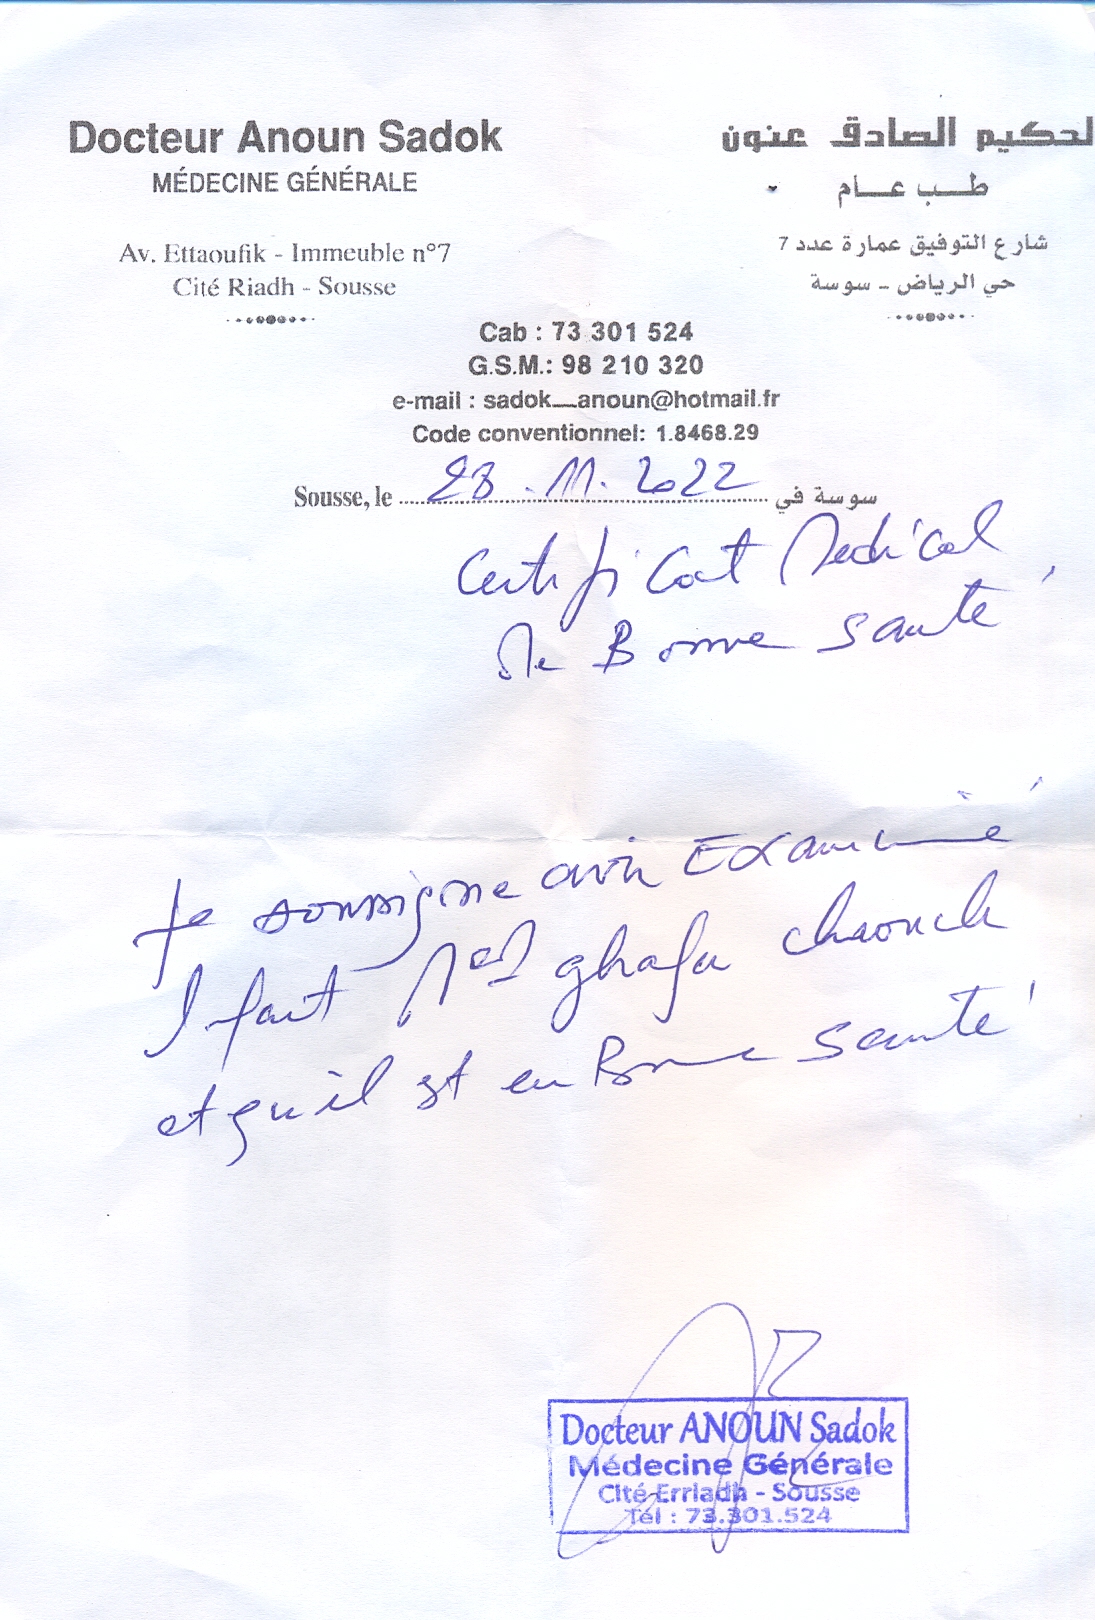 Docteur Anoun Sadok
MÉDECINE GÉNÉRALE
Av. Ettaoufik - Immeuble n°7
Cité Riadh - Sousse
لحكيم الصادق عنون
طب عام
شارع التوفيق عمارة عدد 7
حي الرياض - سوسة
Cab : 73 301 524
G.S.M.: 98 210 320
e-mail : sadok_anoun@hotmail.fr
Code conventionnel: 1.8468.29
Sousse, le 28.11.2022 سوسة في
Certificat Medical
De Bonne santé
Je soussigne avoir Examiné
l'enfant Med ghafa chaouch
et qu'il est en Bonne santé
Docteur ANOUN Sadok
Médecine Générale
Cité Erriadh - Sousse
Tél : 73.301.524